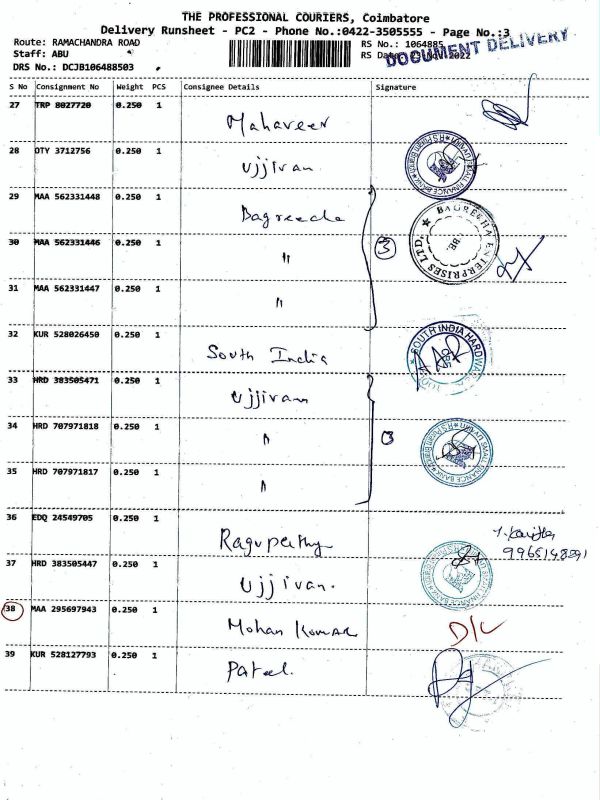 THE PROFESSIONAL COURIERS, Coimbatore
Delivery Runsheet - PC2 - Phone No.:0422-3505555 - Page No.:3
DOCUMENT DELIVERY
Route: RAMACHANDRA ROAD
RS No.: 1064885
Staff: ABU
RS Date: 2022
DRS No.: DCJB106488503
S No Consignment No Weight PCS Consignee Details Signature
27 TRP 8027720 0.250 1 Mahaveer
28 OTY 3712756 0.250 1 Ujjivan
29 MAA 562331448 0.250 1 Bagreecha
BAGRECHA ENTERPRISES LTD.
30 MAA 562331446 0.250 1 " 3
31 MAA 562331447 0.250 1 "
32 KUR 528026450 0.250 1 South India
SOUTH INDIA HARDWARE
33 HRD 383505471 0.250 1 Ujjivan
34 HRD 707971818 0.250 1 " 3
SMALL FINANCE BANK
35 HRD 707971817 0.250 1 "
36 EDQ 24549705 0.250 1 Ragupathy
37 HRD 383505447 0.250 1 Ujjivan.
38 MAA 295697943 0.250 1 Mohan Kumar D/L
39 KUR 528127793 0.250 1 Patel.